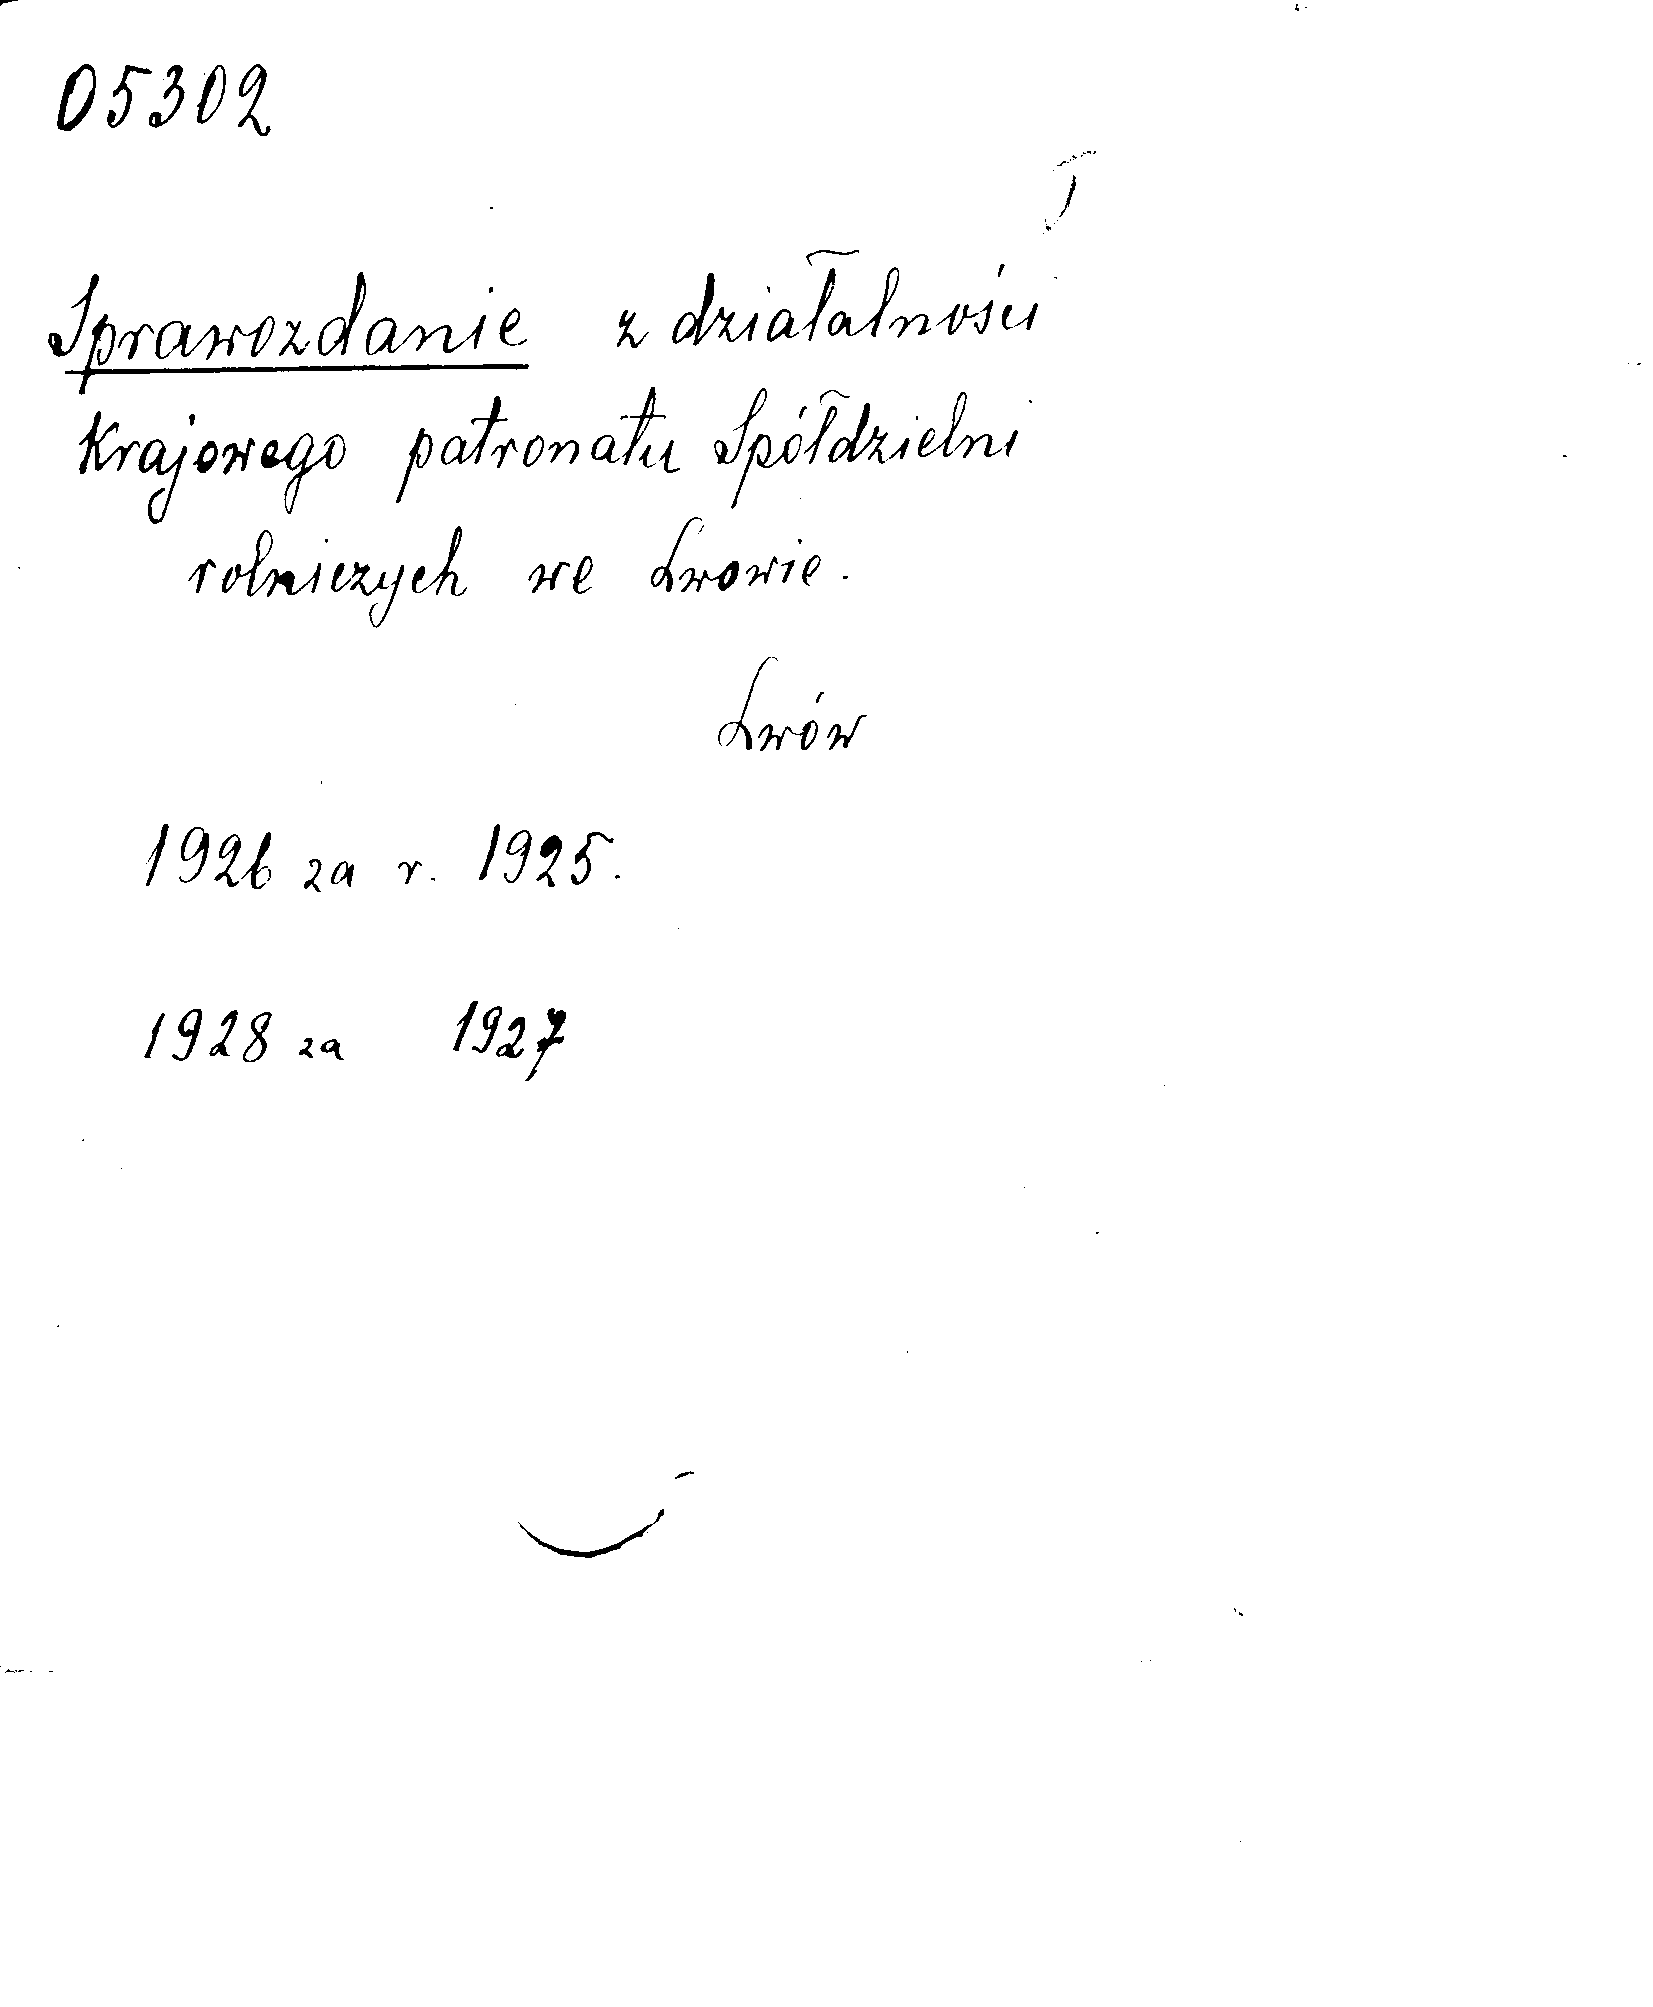 05302
Sprawozdanie z działalności
Krajowego patronatu Spółdzielni
rolniczych we Lwowie.
Lwów
1926 za r. 1925.
1928 za 1927